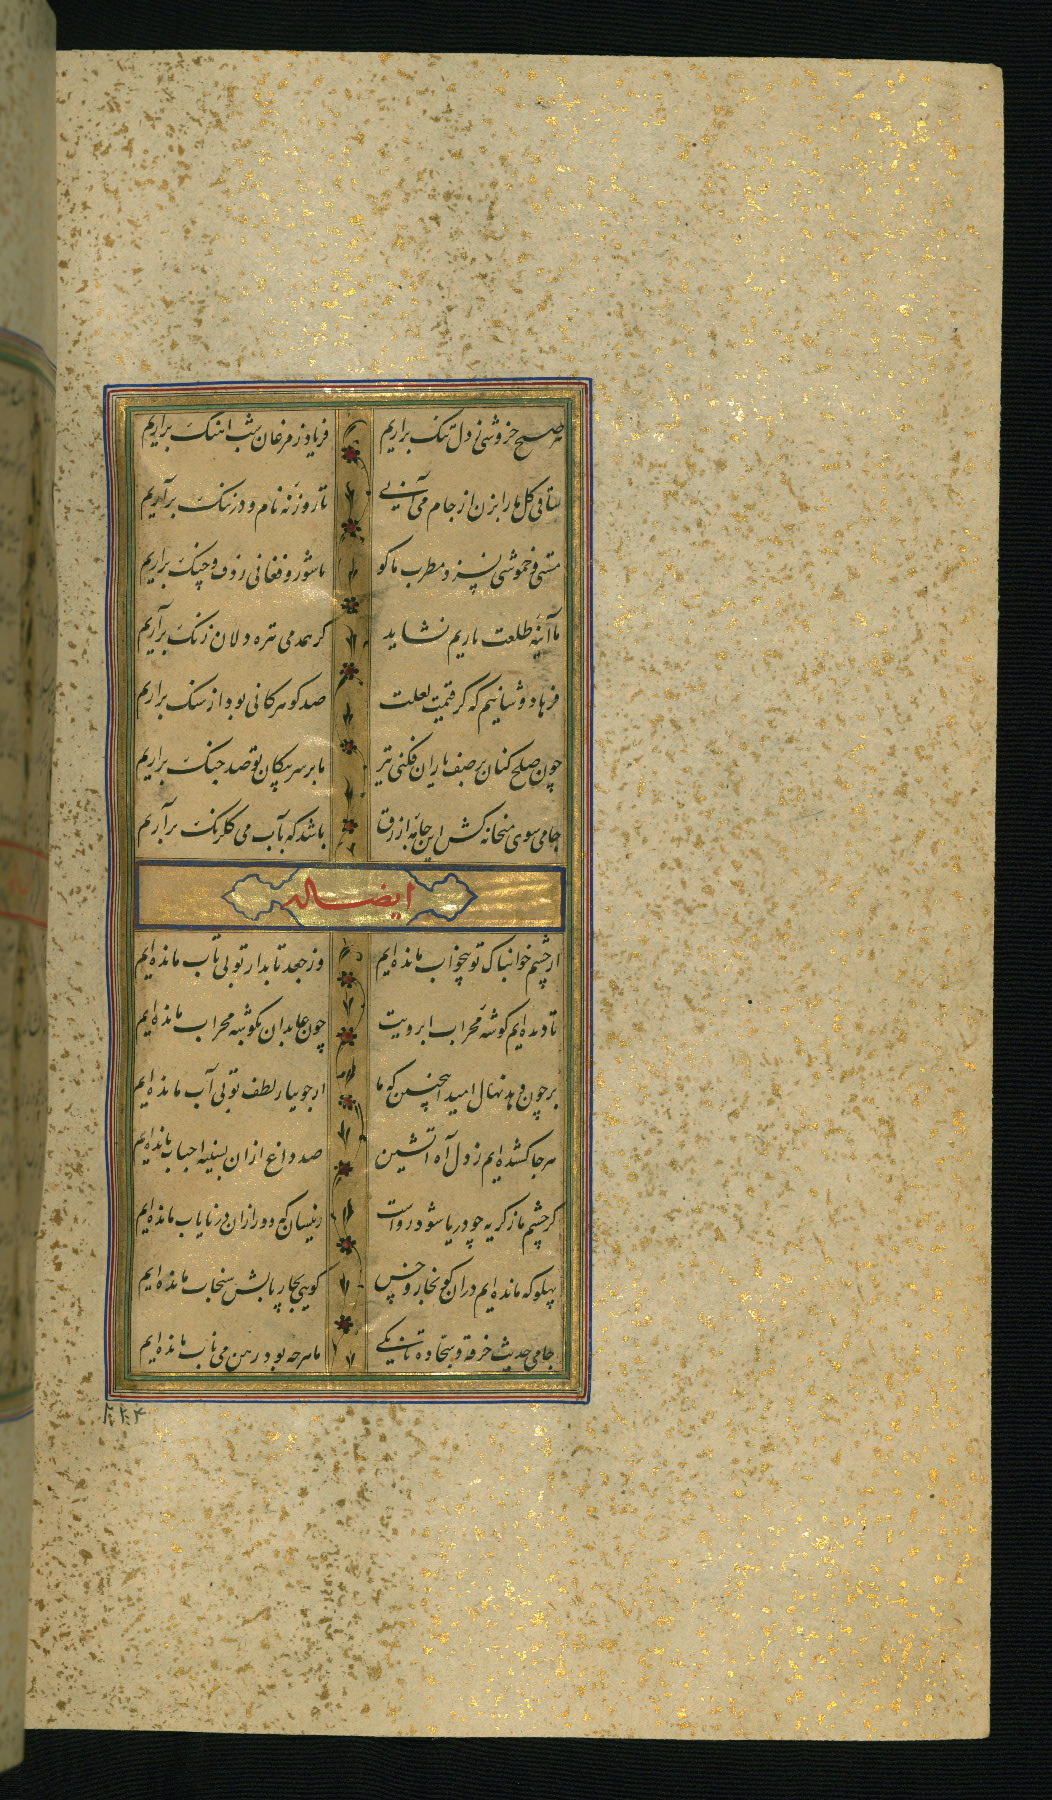 هر صبح خروشی ز دل تنک براریم فریاد ز مرغان شب اهنک براریم
ساقی کل ما را بزن از جام می آبی تا روزنه نام و در ننک برآریم
مستی و خموشی نسزد مطرب ما کو تا شور و فغانی ز دف و چنک براریم
ما آینهٔ طلعت یاریم نشاید کز همدمی تیره دلان زنک برآریم
فرهاد وشانیم که کر قیمت لعلت صد کوهر کانی بود از سنک براریم
چون صلح کنان بر صف یاران فکنی تیر ما بر سر پیکان تو صد جنک براریم
جامی سوی میخانه کش این جامهٔ ازرق باشد که بآب می کلرنک برآریم
ایضاله
از چشم خوابناک تو بیخواب مانده‌ایم وز جعد تابدار تو بی تاب مانده‌ایم
تا دیده‌ایم کوشهٔ محراب ابرویت چون عابدان بکوشهٔ محراب مانده‌ایم
بر چون دهد نهال امید اینچنین که ما از جویبار لطف تو بی آب مانده‌ایم
هر جا کشیده‌ایم ز دل آه آتشین صد داغ ازان بسینه احباب مانده‌ایم
کر چشم ما ز کریه چو دریا شود رواست زینسان که دور ازان در نایاب مانده‌ایم
پهلو که مانده‌ایم دران کو بخار و خس کویی بجار بالش سنجاب مانده‌ایم
جامی حدیث خرقه و سجاده تا بکی ما هر چه بود رهن می ناب مانده‌ایم